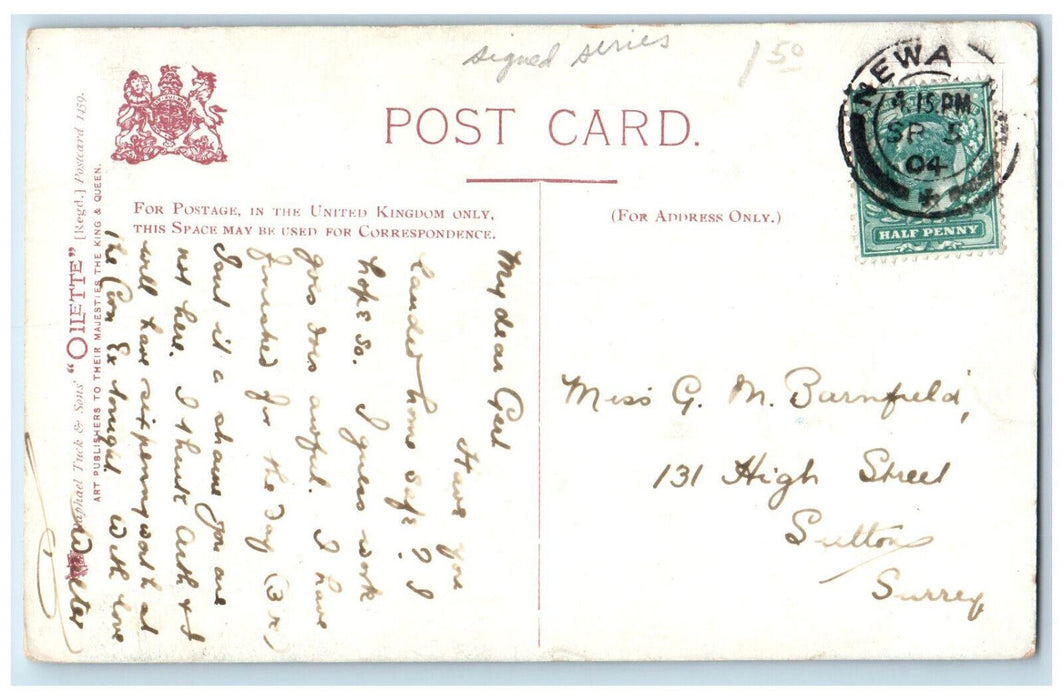 signed series
1 50
POST CARD.
NEWA
9.15 PM
SP 5
04
HALF PENNY
FOR POSTAGE, IN THE UNITED KINGDOM ONLY,
THIS SPACE MAY BE USED FOR CORRESPONDENCE.
(FOR ADDRESS ONLY.)
My dear Gert
Have you
landed home safe? I
hope so. I guess work
goes does awful. I have
finished for the day (3
Isnt it a shame you are
not here. I think Arth & I
will have sixpennyworth at
the Corn Ex tonight With love
Walter
Raphael Tuck & Sons' "OILETTE" [Regd.] Postcard 1459.
ART PUBLISHERS TO THEIR MAJESTIES THE KING & QUEEN.
Miss G. M. Barnfield,
131 High Street
Sutton
Surrey